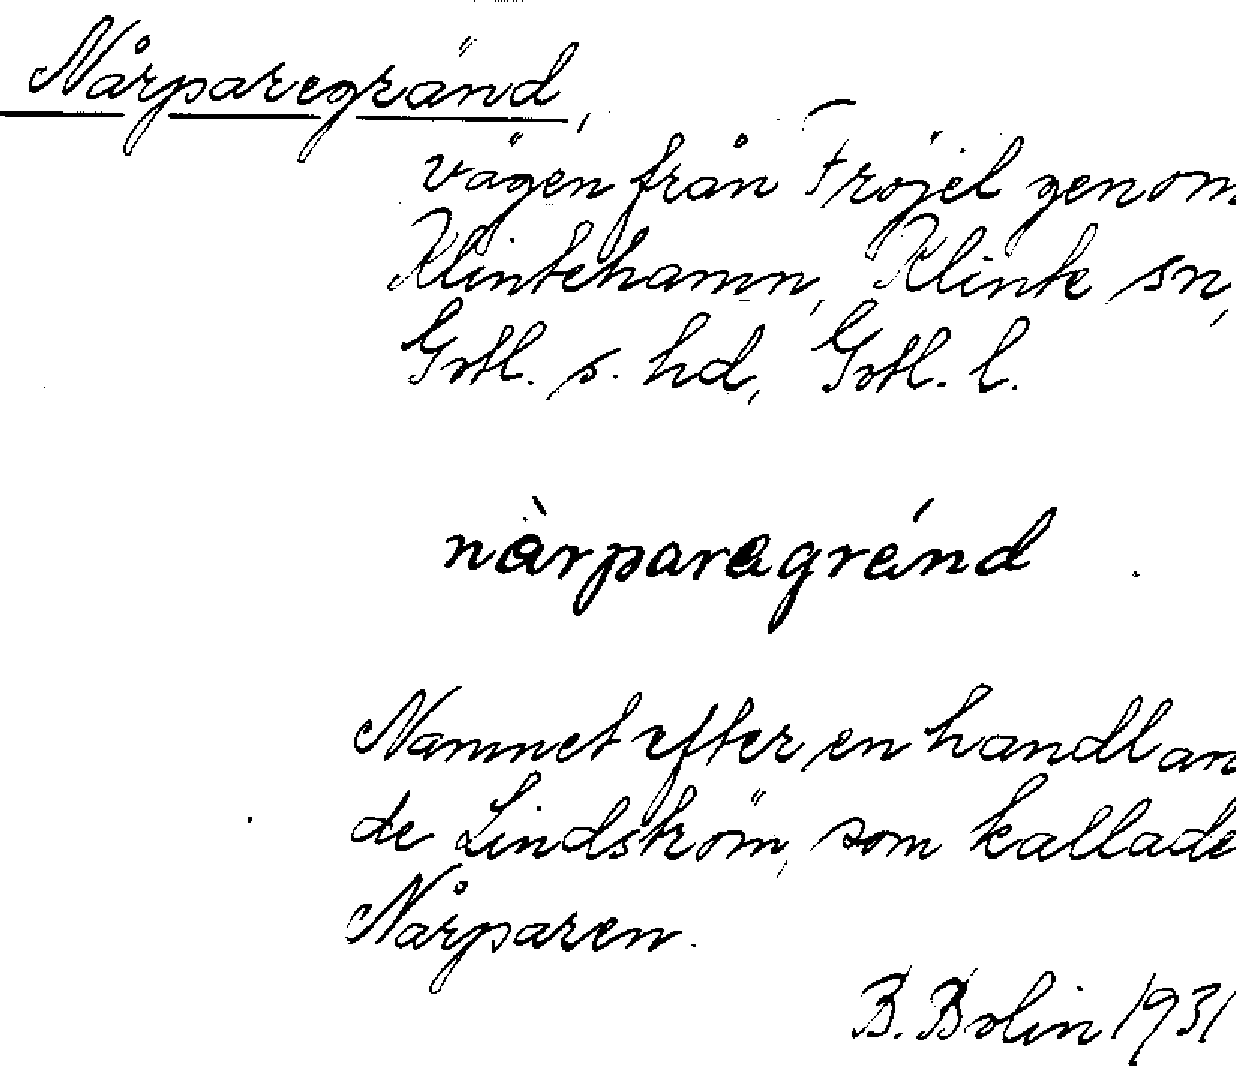 Nårparegränd,
vägen från Fröjel genom
Klintehamn, Klinte sn,
Gotl. s. hd, Gotl. l.
nàrparagränd
Namnet efter en handlan
de Lindström, som kallades
Nårparen.
B. Bolin 1931